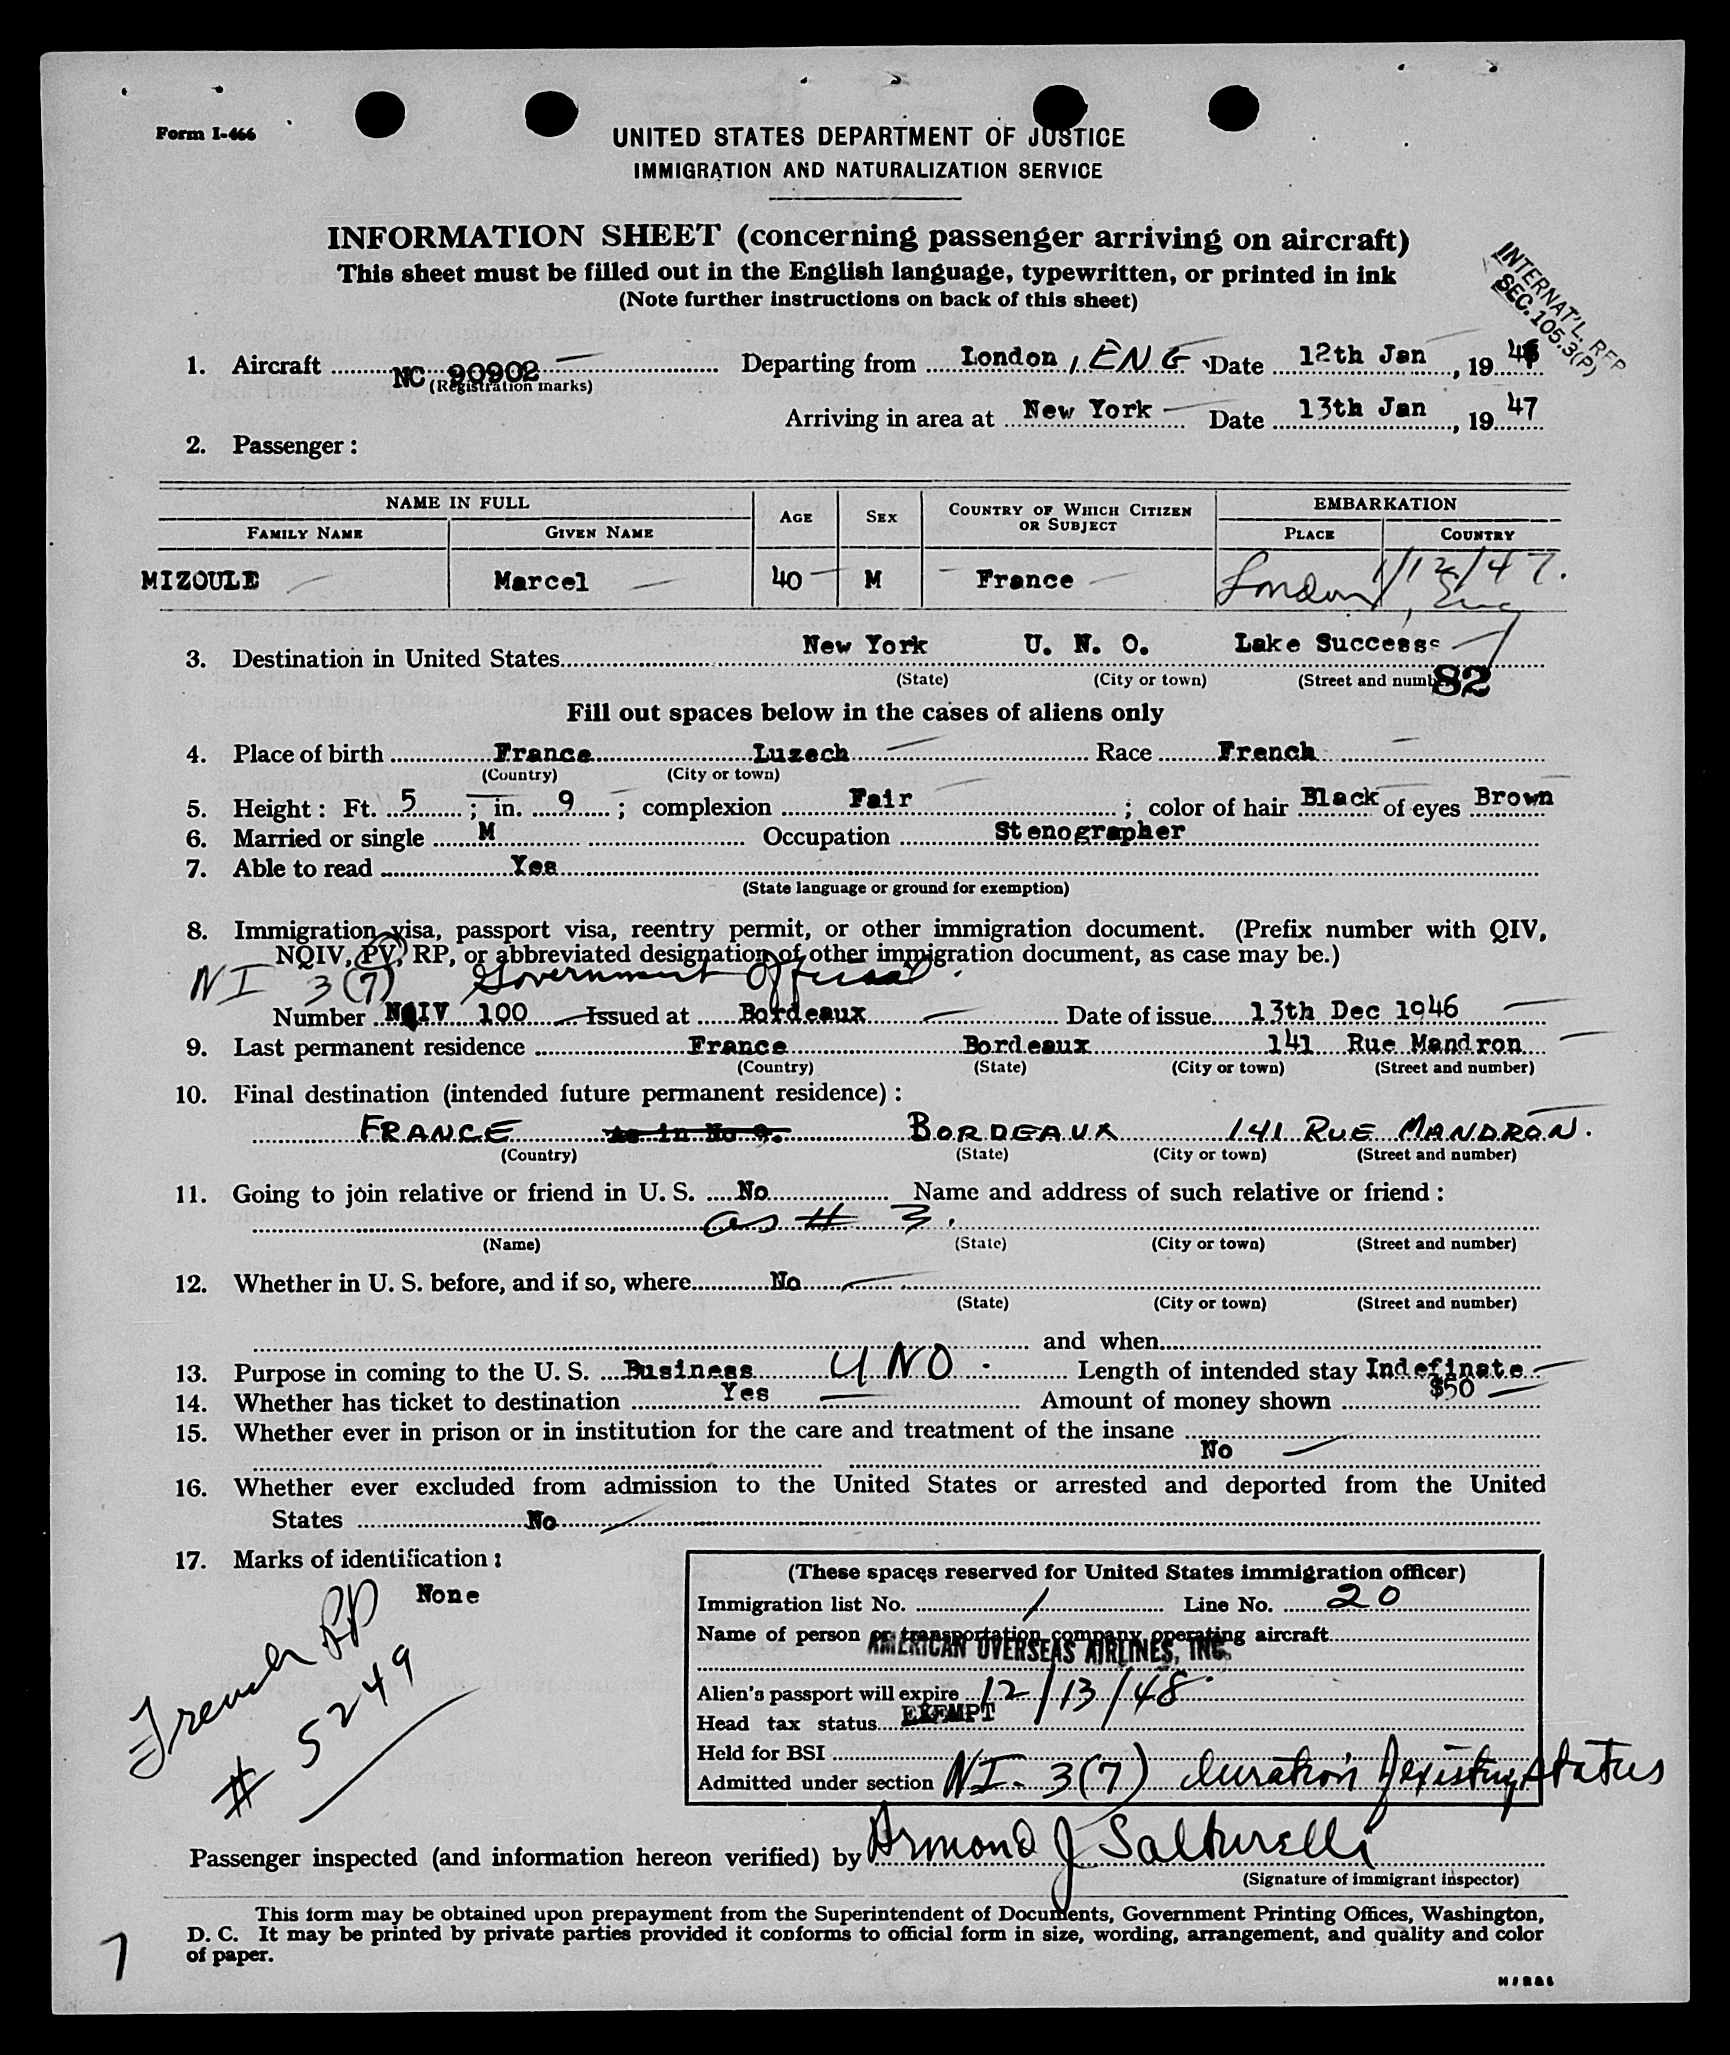 Form I-466
UNITED STATES DEPARTMENT OF JUSTICE
IMMIGRATION AND NATURALIZATION SERVICE
INFORMATION SHEET (concerning passenger arriving on aircraft)
This sheet must be filled out in the English language, typewritten, or printed in ink
(Note further instructions on back of this sheet)
INTERNAT'L REP
SEC. 105.3(P)
1. Aircraft NC 90902 Departing from London, ENG Date 12th Jan, 19
(Registration marks)
Arriving in area at New York Date 13th Jan, 1947
2. Passenger:
NAME IN FULL AGE SEX COUNTRY OF WHICH CITIZEN OR SUBJECT EMBARKATION
FAMILY NAME GIVEN NAME PLACE COUNTRY
MIZOULE Marcel 40 M France London Eng 1/12/47.
3. Destination in United States New York U. N. O. Lake Success
(State) (City or town) (Street and number)
82
Fill out spaces below in the cases of aliens only
4. Place of birth France Luzech Race French
(Country) (City or town)
5. Height: Ft. 5; in. 9; complexion Fair; color of hair Black of eyes Brown
6. Married or single M Occupation Stenographer
7. Able to read Yes
(State language or ground for exemption)
8. Immigration visa, passport visa, reentry permit, or other immigration document. (Prefix number with QIV,
NQIV, PV, RP, or abbreviated designation of other immigration document, as case may be.)
NI 3(7) Government Official.
Number NQIV 100 Issued at Bordeaux Date of issue 13th Dec 1946
9. Last permanent residence France Bordeaux 141 Rue Mandron
(Country) (State) (City or town) (Street and number)
10. Final destination (intended future permanent residence):
FRANCE As in No 9. BORDEAUX 141 RUE MANDRON.
(Country) (State) (City or town) (Street and number)
11. Going to join relative or friend in U. S. No Name and address of such relative or friend:
as # 3.
(Name) (State) (City or town) (Street and number)
12. Whether in U. S. before, and if so, where No
(State) (City or town) (Street and number)
and when
13. Purpose in coming to the U. S. Business UNO. Length of intended stay Indefinate
14. Whether has ticket to destination Yes Amount of money shown $50
15. Whether ever in prison or in institution for the care and treatment of the insane
No
16. Whether ever excluded from admission to the United States or arrested and deported from the United
States No
17. Marks of identification:
None
French PP
# 5249
(These spaces reserved for United States immigration officer)
Immigration list No. 1 Line No. 20
Name of person or transportation company operating aircraft
AMERICAN OVERSEAS AIRLINES, INC.
Alien's passport will expire 12/13/48
Head tax status EXEMPT
Held for BSI
Admitted under section NI- 3(7) duration of existing status
Passenger inspected (and information hereon verified) by Armond J Salturelli
(Signature of immigrant inspector)
This form may be obtained upon prepayment from the Superintendent of Documents, Government Printing Offices, Washington,
D. C. It may be printed by private parties provided it conforms to official form in size, wording, arrangement, and quality and color
of paper.
7